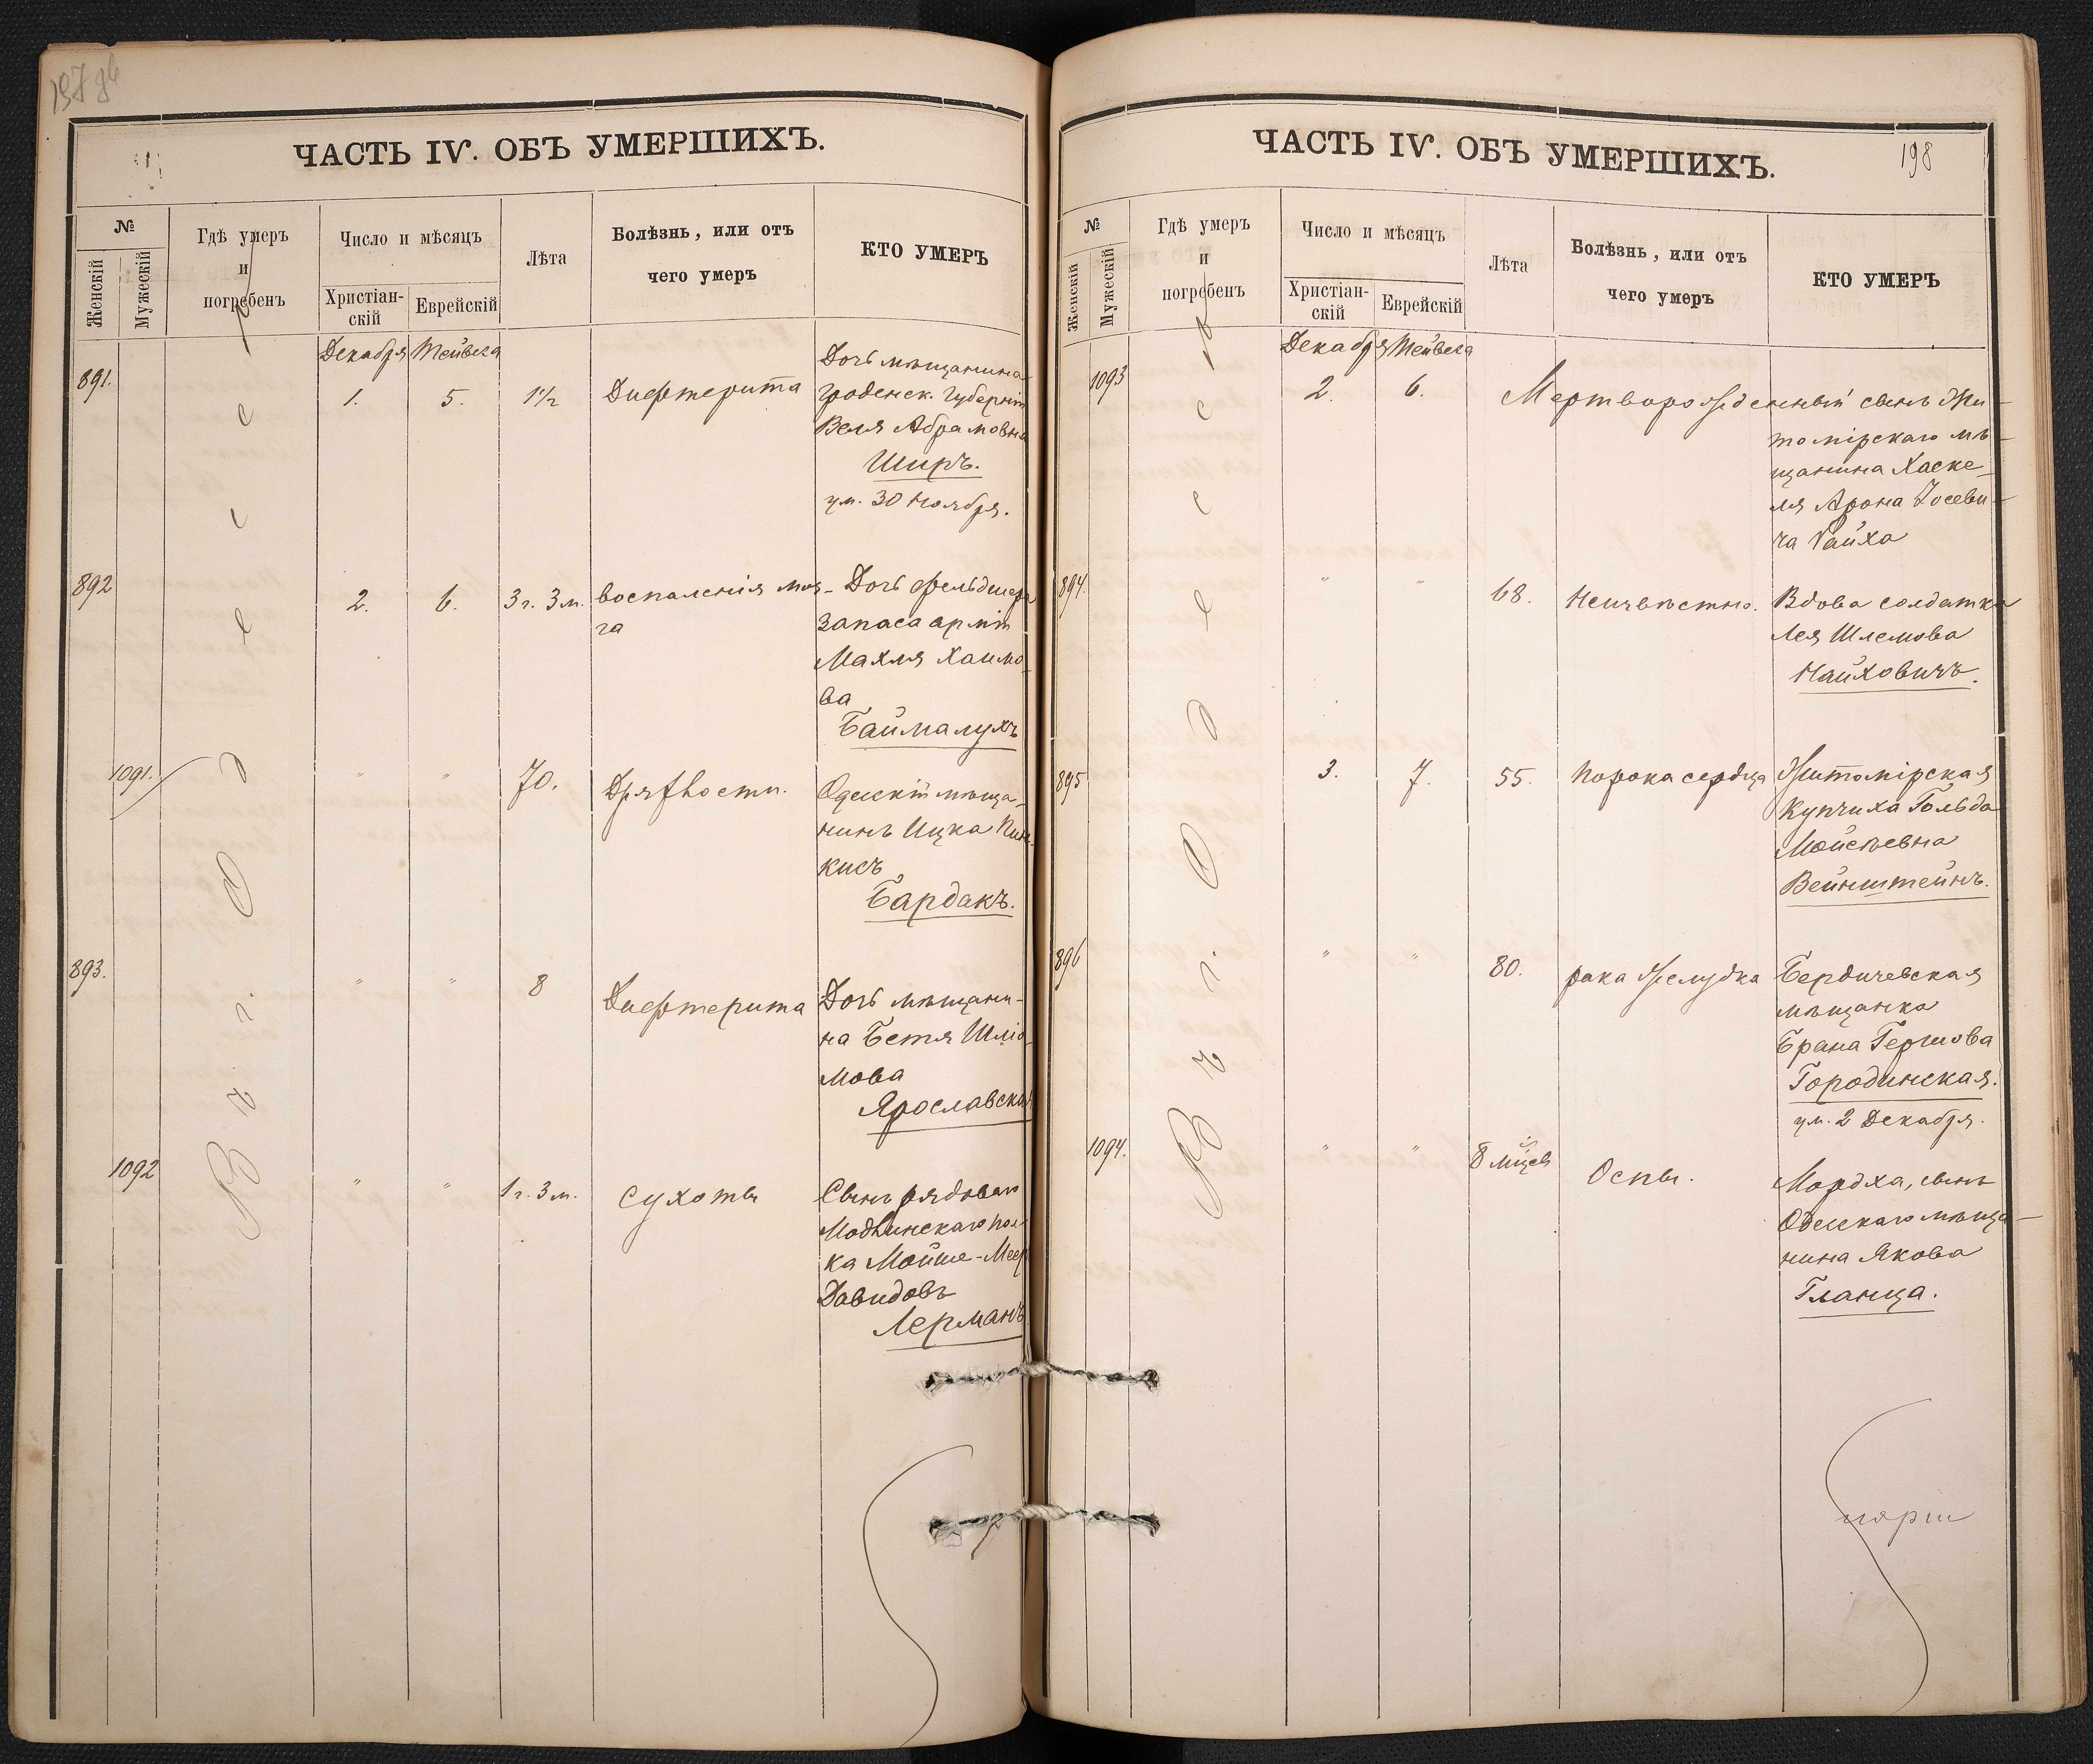 ЧАСТЬ IV. ОБЪ УМЕРШИХЪ.
№
Женскій
Мужескій
Гдѣ умеръ
и
погребенъ
Число и мѣсяцъ
Христіан-
скій
Еврейскій
Лѣта
Болѣзнь, или отъ
чего умеръ
КТО УМЕРЪ
Въ г. Одессѣ
Декабря Тейвеса
891.
1.
5.
1½
Дифтерита
Дочь мѣщанина
гроденск. губерніи
Веля Абрамовна
Ширъ.
ум. 30 Ноября.
892
2.
6.
3 г. 3 м.
воспаленія моз-
га
Дочь фельдшера
запаса арміи
Махля Хаимо-
ва
Баймалухъ
1091.
"
"
70.
Дряхлости.
Одесскій мѣща-
нинъ Ицка Пин-
кисъ
Бардакъ.
893.
"
"
8
Дифтерита
Дочь мѣщани-
на Бетя Шлiо-
мова
Ярославская
1092
"
"
1 г. 3 м.
Сухоты
Сынъ рядового
Модлинскаго пол-
ка Мойше-Меер
Давидовъ
Лерманъ
ЧАСТЬ IV. ОБЪ УМЕРШИХЪ.
198
№
Женскій
Мужескій
Гдѣ умеръ
и
погребенъ
Число и мѣсяцъ
Христіан-
скій
Еврейскій
Лѣта
Болѣзнь, или отъ
чего умеръ
КТО УМЕРЪ
Въ г. Одессѣ
Декабря Тейвеса
1093
2.
6.
Мертворожденный сынъ Жи-
томірскаго мѣ-
щанина Хаске-
ля Арона Іосеви-
ча Райха
894.
"
"
68.
Неизвѣстно.
Вдова солдатка
Лея Шлемова
Найховичъ.
895
3.
7.
55.
Порока сердца
Житомірская
купчиха Гольда
Мойсѣевна
Вейнштейнъ.
896
"
"
80.
рака желудка
Бердичевская
мѣщанка
Брана Гершова
Городинская.
ум. 2 Декабря.
1094.
"
"
8 мѣсев
Оспы.
Мордха, сынъ
Одесскаго мѣща-
нина Якова
Гланца.